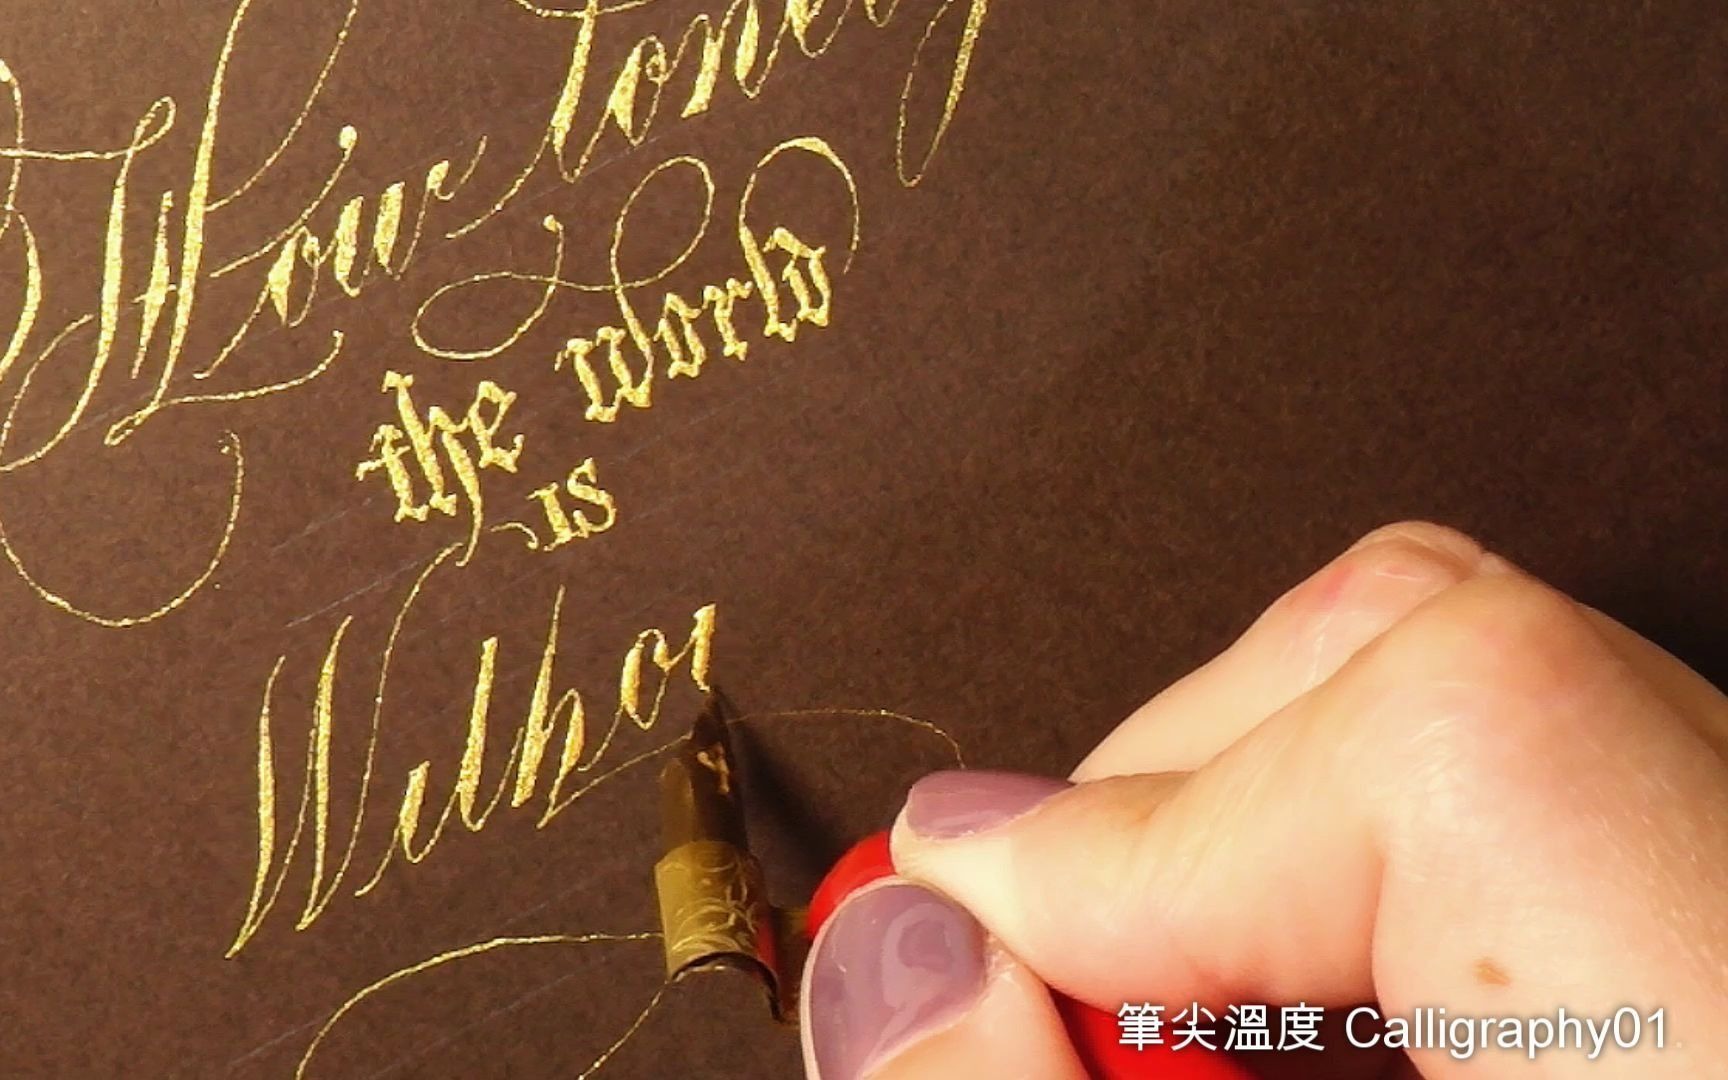 How lonely
the world
is
Withou
筆尖溫度 Calligraphy01